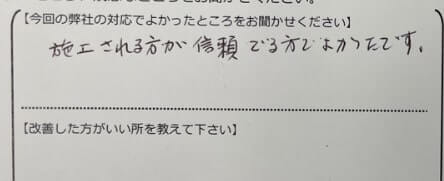 【今回の弊社の対応でよかったところをお聞かせください】
施工される方が信頼でる方でよかったです。
【改善した方がいい所を教えて下さい】